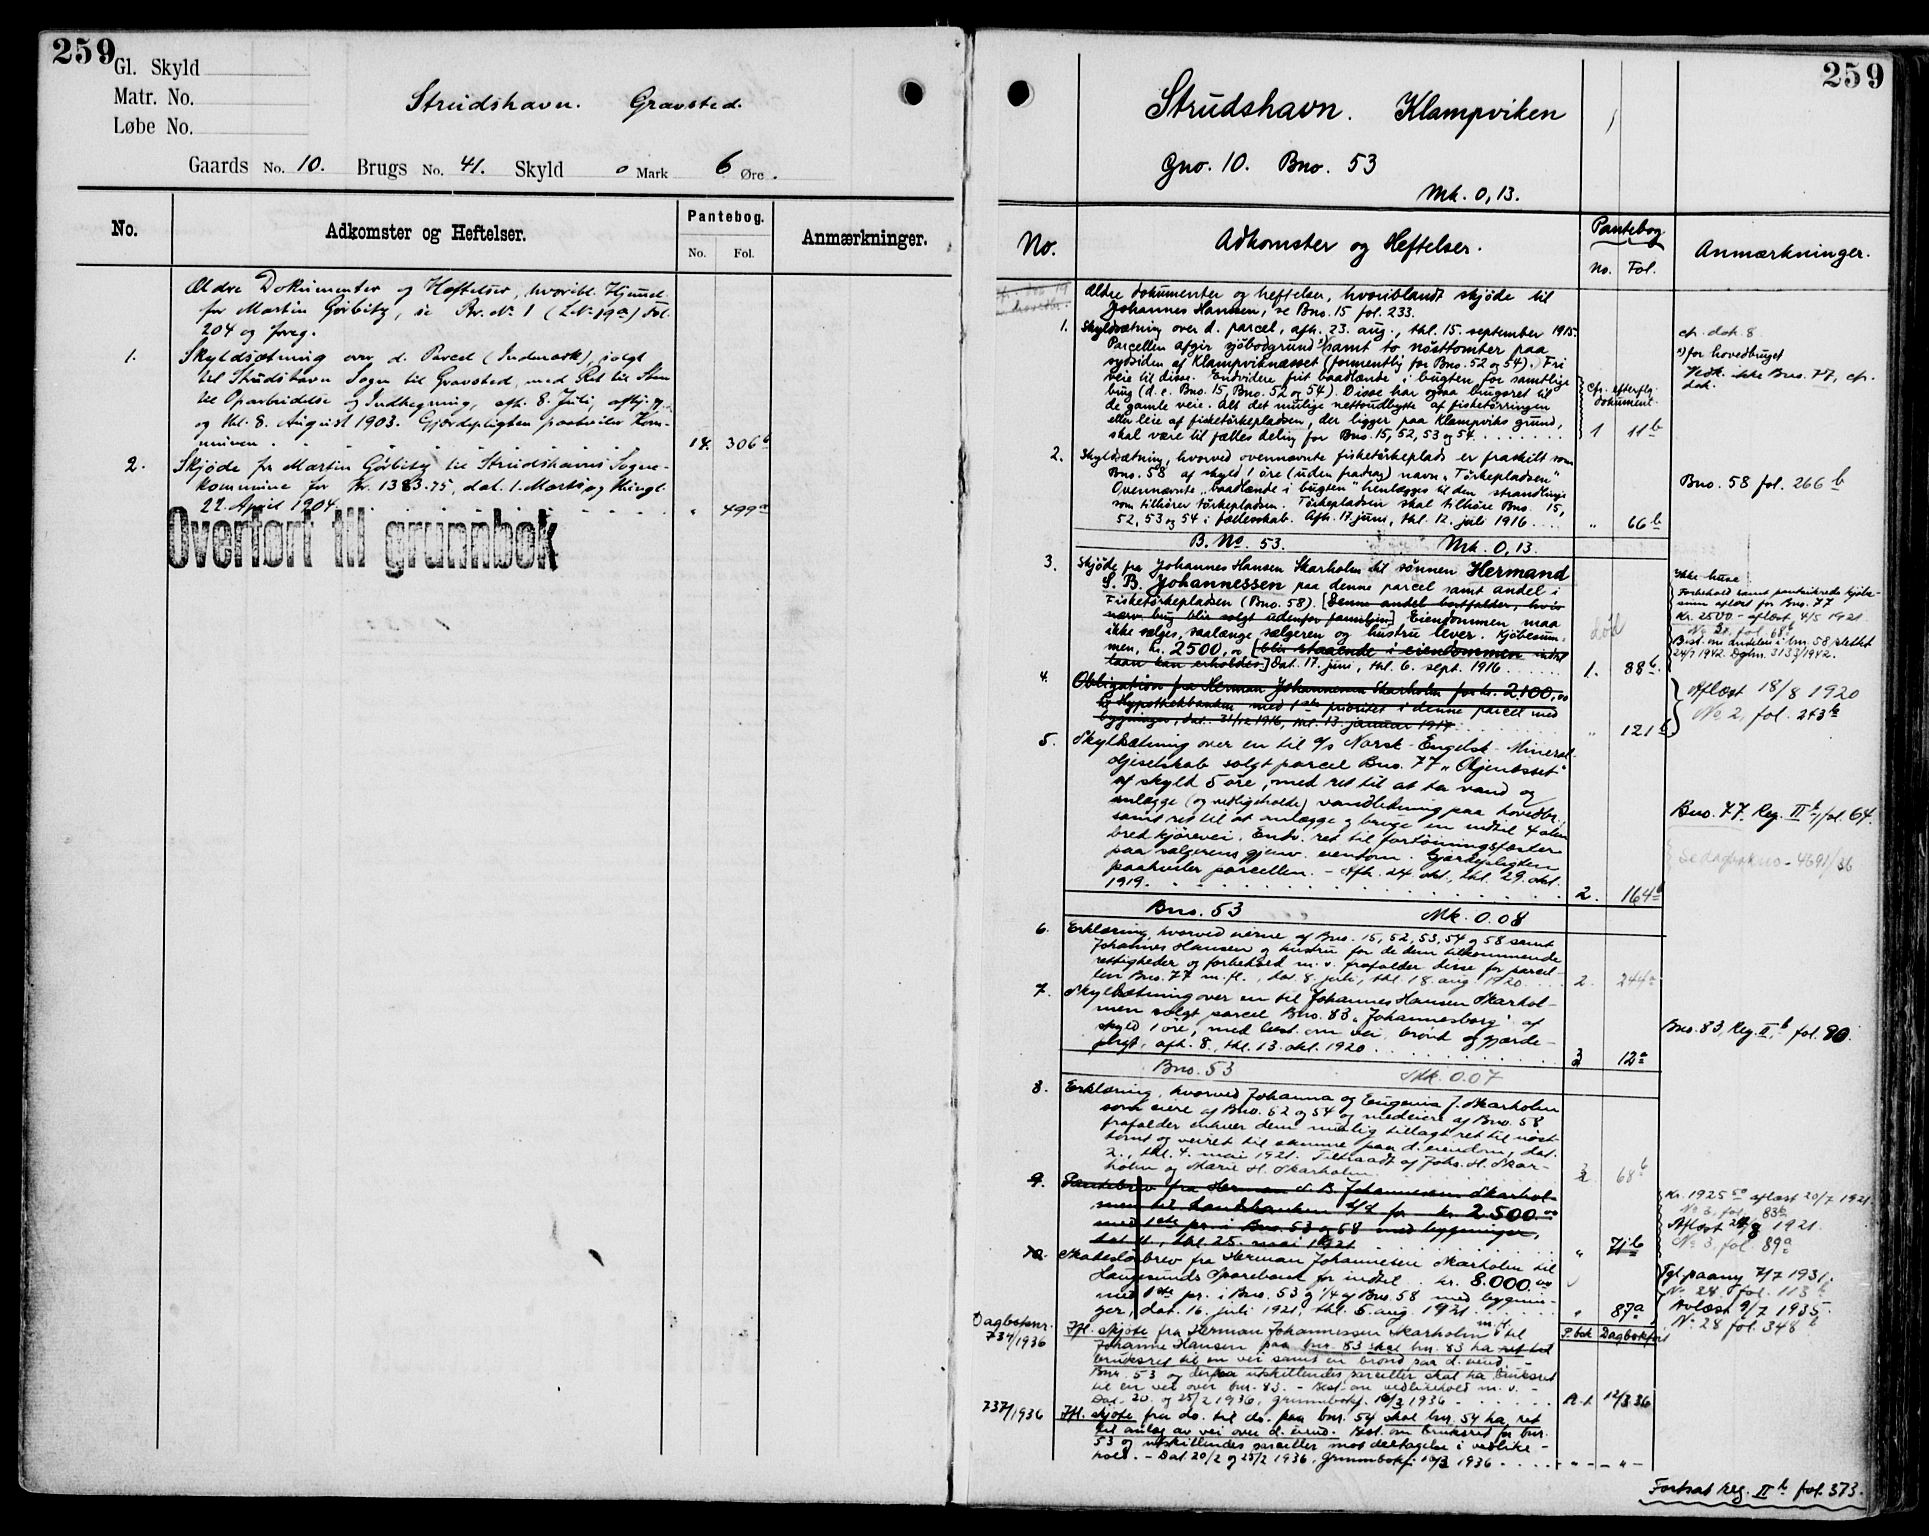 259
Gl. Skyld
Matr. No.
Løbe No.
Strudshavn. Gravsted.
Gaards No. 10. Brugs No. 41. Skyld 0 Mark 6 Øre.
No.
Adkomster og Heftelser.
Pantebog.
No. Fol.
Anmærkninger.
Ældre Dokumenter og Heftelser, hvoribl. Hjemmel
for Martin Gørbitz, se Br. No 1 (L No 19a) Fol.
204 og foreg.
1. Skyldsætning over d. Parcel (Indmark), solgt
til Strudshavn Sogn til Gravsted, med Ret til Sten
til Oparbeidelse og Indhegning, afh. 8. Juli,
og thl. 8. August 1903. Gjerdepligten paahviler Kom-
munen . . . 14. 306b
2. Skjøde fra Martin Gørbitz til Strudshavns Sogne-
kommune for Kr. 1383.75, dat. 1. Marts og thingl.
22. April 1904. . . . " 499a
Overført til grunnbok
259
Strudshavn. Klampviken
Gno. 10. Bno. 53
Mk. 0,13.
No.
Adkomster og Heftelser.
Pantebog
No. Fol.
Anmærkninger.
Ældre dokumenter og heftelser, hvoriblandt skjøde til
Johannes Hansen, se Bno. 15 fol. 233.
1. Skyldsætning over d. parcel, afh. 23. aug., thl. 15. september 1915.
Parcellen afgir sjøbodgrund 1) samt to nøsttomter paa
sydsiden af Klampviknæsset (formentlig for Bno. 52 og 54). Fri
veie til disse. Endvidere frit baadlænde i bugten for samtlige
brug (d.e. Bno. 15, Bno. 52 og 54). Disse har ogsaa brugsret til
de gamle veie. Alt det mulige nettoudbytte af fisketørringen
eller leie af fisketørkepladsen, der ligger paa Klampviks grund,
skal være til fælles deling for Bno. 15, 52, 53 og 54 . . . 1 11b
cfr. efterflg. dokument.
cfr. dok. 8
1) for hovedbruget
Vedk. ikke Bno. 77, cfr.
dok.
2. Skyldsætning, hvorved ovennævnte fisketørkeplads er fraskilt som
Bno. 58 af skyld 1 øre (uden fradrag) navn „Tørkepladsen"
Ovennævnte „baadlænde i bugten" henlægges til den strandlinje
som tilhører tørkepladsen. Tørkepladsen skal tilhøre Bno. 15,
52, 53 og 54 i fællesskab. Afh. 17. juni, thl. 12. juli 1916 . . . " 66b
Bno. 58 fol. 266b
B. No. 53. Mk. 0,13.
3. Skjøde fra Johannes Hansen Skarholm til sønnen Hermand
S. B. Johannessen paa denne parcel samt andel i
Fisketørkepladsen (Bno. 58). [Denne andel bortfalder, hvis
nærv. brug blir solgt udenfor familjen] Eiendommen maa
ikke sælges, saalænge sælgeren og hustru lever. Kjøbesum-
men, kr. 2500,00 [blir staaende i eiendommen indtil
laan kan erholdes] Dat. 17. juni, thl. 6. sept. 1916 . . . 1. 88b.
Ikke huse
Forbehold samt pantsikrede kjøbe-
sum afløst for Bno. 77
Kr. 2500 - afløst 4/5 1921
No 3. fol. 68b
Best. om andelen i bnr. 58, slettet
24/7 1942. Dgbnr. 3137/1942.
4. Obligation fra Herman Johannesen Skarholm for kr. 2100,00
til Hypothekbanken med 1ste prioritet i denne parcel med
bygninger, dat. 31/12 1916, thl. 13. januar 1917 . . . " 121b
Afløst 18/8 1920
No 2, fol. 243b
5. Skyldsætning over en til a/s Norsk-Engelsk-Mineral-
oljeselskab solgt parcel Bno. 77 „Oljenesset"
af skyld 5 øre, med ret til at ta vand og
anlægge (og vedligeholde) vandledning paa hovedbr.
samt ret til at anlægge og bruge en indtil 4 alen
bred kjørevei. Endv. ret til fortøiningsfæster
paa sælgerens gjenv. eiendom. Gjærdepligten
paahviler parcellen. - Afh. 24. okt., thl. 29. okt.
1919. . . . 2. 164a
Bno. 77. Reg. IIb, fol. 64.
Se dagboksno - 4691/36
Bno. 53 Mk. 0.08
6. Erklæring, hvorved eierne af Bno. 15, 52, 53, 54 og 58 samt
Johannes Hansen og hustru for de dem tilkommende
rettigheder og forbehold m.v. frafalder disse for parcel-
len Bno. 77 m.fl., dat. 8. juli, thl. 18. aug. 1920 . . . 2. 244a
7. Skyldsætning over en til Johannes Hansen Skarhol-
men solgt parcel Bno. 83 „Johannesborg" af
skyld 1 øre, med best. om vei, brønd og gjærde-
pligt, afh. 8., thl. 13. okt. 1920 . . . 3 12a
Bno. 83, Reg. IIb, fol. 80.
Bno. 53 Mk. 0.07
8. Erklæring, hvorved Johanna og Eugenia J. Skarholm
som eiere af Bno. 52 og 54 og medeiere af Bno. 58
frafalder enhver dem mulig tillagt ret til nøst-
tomt og veiret til samme paa d. eiendom, dat.
2., thl. 4. mai 1921. Tiltraadt af Johs. H. Skar-
holm og Marie H. Skarholm . . . 3 68b
9. Pantebrev fra Herman S. B. Johannesen Skarhol-
men til Landsbanken A/S for kr. 2500.00
med 1ste pr. i Bno. 53 og 58 med bygninger,
dat. 11., thl. 25. mai 1921 . . . " 71b
Kr. 1925.50 afløst 20/7 1921
No 3, fol. 83b
Afløst 24/8 1921.
No 3, fol. 89a
10. Skadesløsbrev fra Herman Johannesen Skarholm til
Haugesunds Sparebank for indtil kr. 8.000.00
med 1ste pr. i Bno. 53 og 1/4 af Bno. 58 med bygnin-
ger, dat. 16. juli 1921, thl. 5. aug. 1921 . . . " 87a
Tgl. paany 7/7 1931.
No. 24. fol. 113b
Avløst 9/7 1935.
No 28 fol. 348b
P.bok Dagbokført
Dagboknr.
734/1936 Ifl. skjøte fra Herman Johannessen Skarholm m.fl. til
Johanne Hansen paa bnr. 83 skal bnr. 83 ha ret til
bruksret til en vei samt en brønd paa d. eiend. -
Bnr. 53 og derpaa utskillendes parceller skal ha bruksret
til en vei over bnr. 83. - Best. om vedlikehold m.v. -
Dat. 20. og 25/2 1936, grunnbokf. 10/3 1936 - . . . A.1. 12/3.36
737/1936 Ifl. skjøte fra do. til do. paa bnr. 54 skal bnr. 54 ha ret
til anlæg av vei over d. eiend. Best. om bruksret for bnr.
53 og utskillendes parceller mot deltagelse i vedlike-
hold. - Dat. 20/2 og 25/2 1936, grunnbokf. 10/3 1936 - . . . - " - - " -
Fortsat Reg. IIb fol. 373.